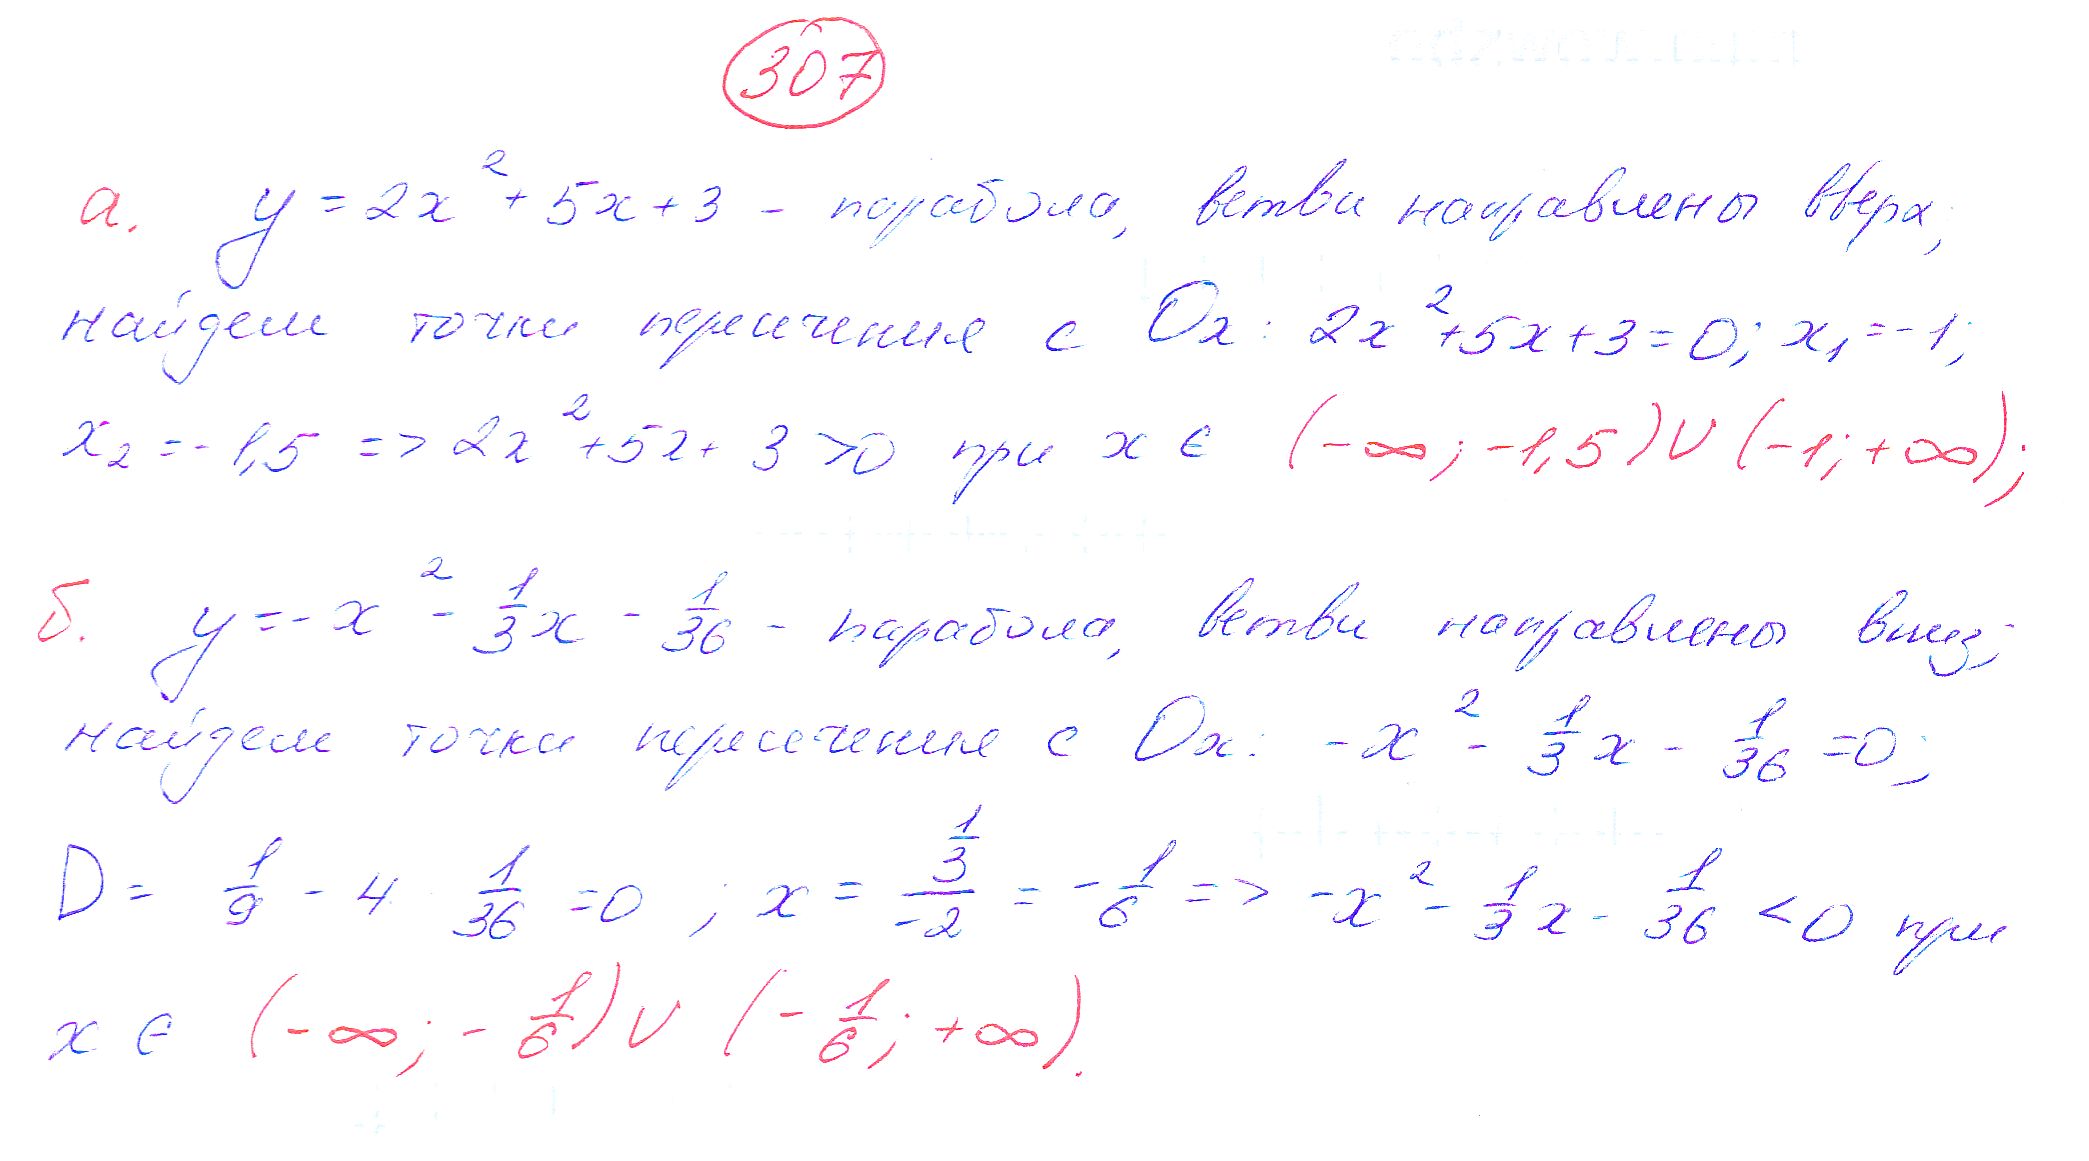 307
а. y = 2x² + 5x + 3 – парабола, ветви направлены вверх;
найдем точки пересечения с Ох: 2x² + 5x + 3 = 0; x₁ = -1;
x₂ = -1,5 => 2x² + 5x + 3 > 0 при x ∈ (-∞; -1,5) ∪ (-1; +∞);
б. y = -x² - 1/3 x - 1/36 – парабола, ветви направлены вниз;
найдем точки пересечения с Ох: -x² - 1/3 x - 1/36 = 0;
D = 1/9 - 4 · 1/36 = 0; x = (1/3)/(-2) = -1/6 => -x² - 1/3 x - 1/36 < 0 при
x ∈ (-∞; -1/6) ∪ (-1/6; +∞).